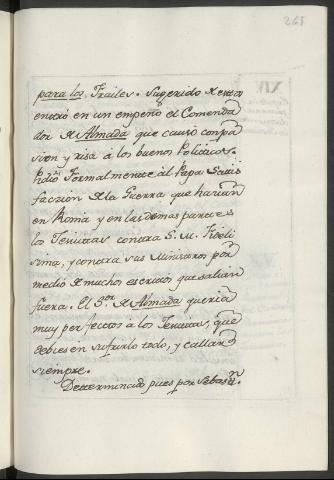 261
para los Frailes. Sugerido de esto
entró en un empeño el Comenda
dor de Almada que causó compa
sion y risa á los buenos Politicos.
Pidió Formalmente al Papa Satis
faccion de la Guerra que hacian
en Roma y en las demas partes
los Jesuitas contra S. M. Fideli
sima, y contra sus Ministros por
medio de muchos escritos que salian
fuera. El S.or de Almada queria
muy perfectos á los Jesuitas, que
debiesen sufrirlo todo, y callar
siempre.
Determinado pues por Sebast.n